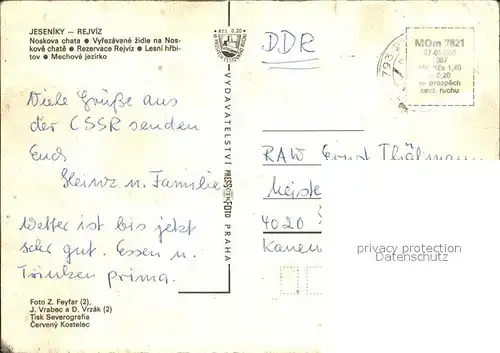 JESENÍKY — REJVÍZ
Noskova chata ● Vyřezávané židle na Nos-
kově chatě ● Rezervace Rejvíz ● Lesní hřbi-
tov ● Mechové jezírko
Kčs 0,20
Viele Grüße aus
der CSSR senden
Euch
Heinz u. Familie
Wetter ist bis jetzt
sehr gut. Essen u.
Trinken prima.
Foto Z. Feyfar (2),
J. Vrabec a D. Vrzák (2)
Tisk Severografia
Červený Kostelec
VYDAVATELSTVÍ PRESSFOTO PRAHA
DDR
793
MOm 7821
067
Kčs 1,40
0,20
ve prospěch
cest. ruchu
RAW Ernst Thälmann
Meiste
4020
Kanen
privacy protection
Versandhandel